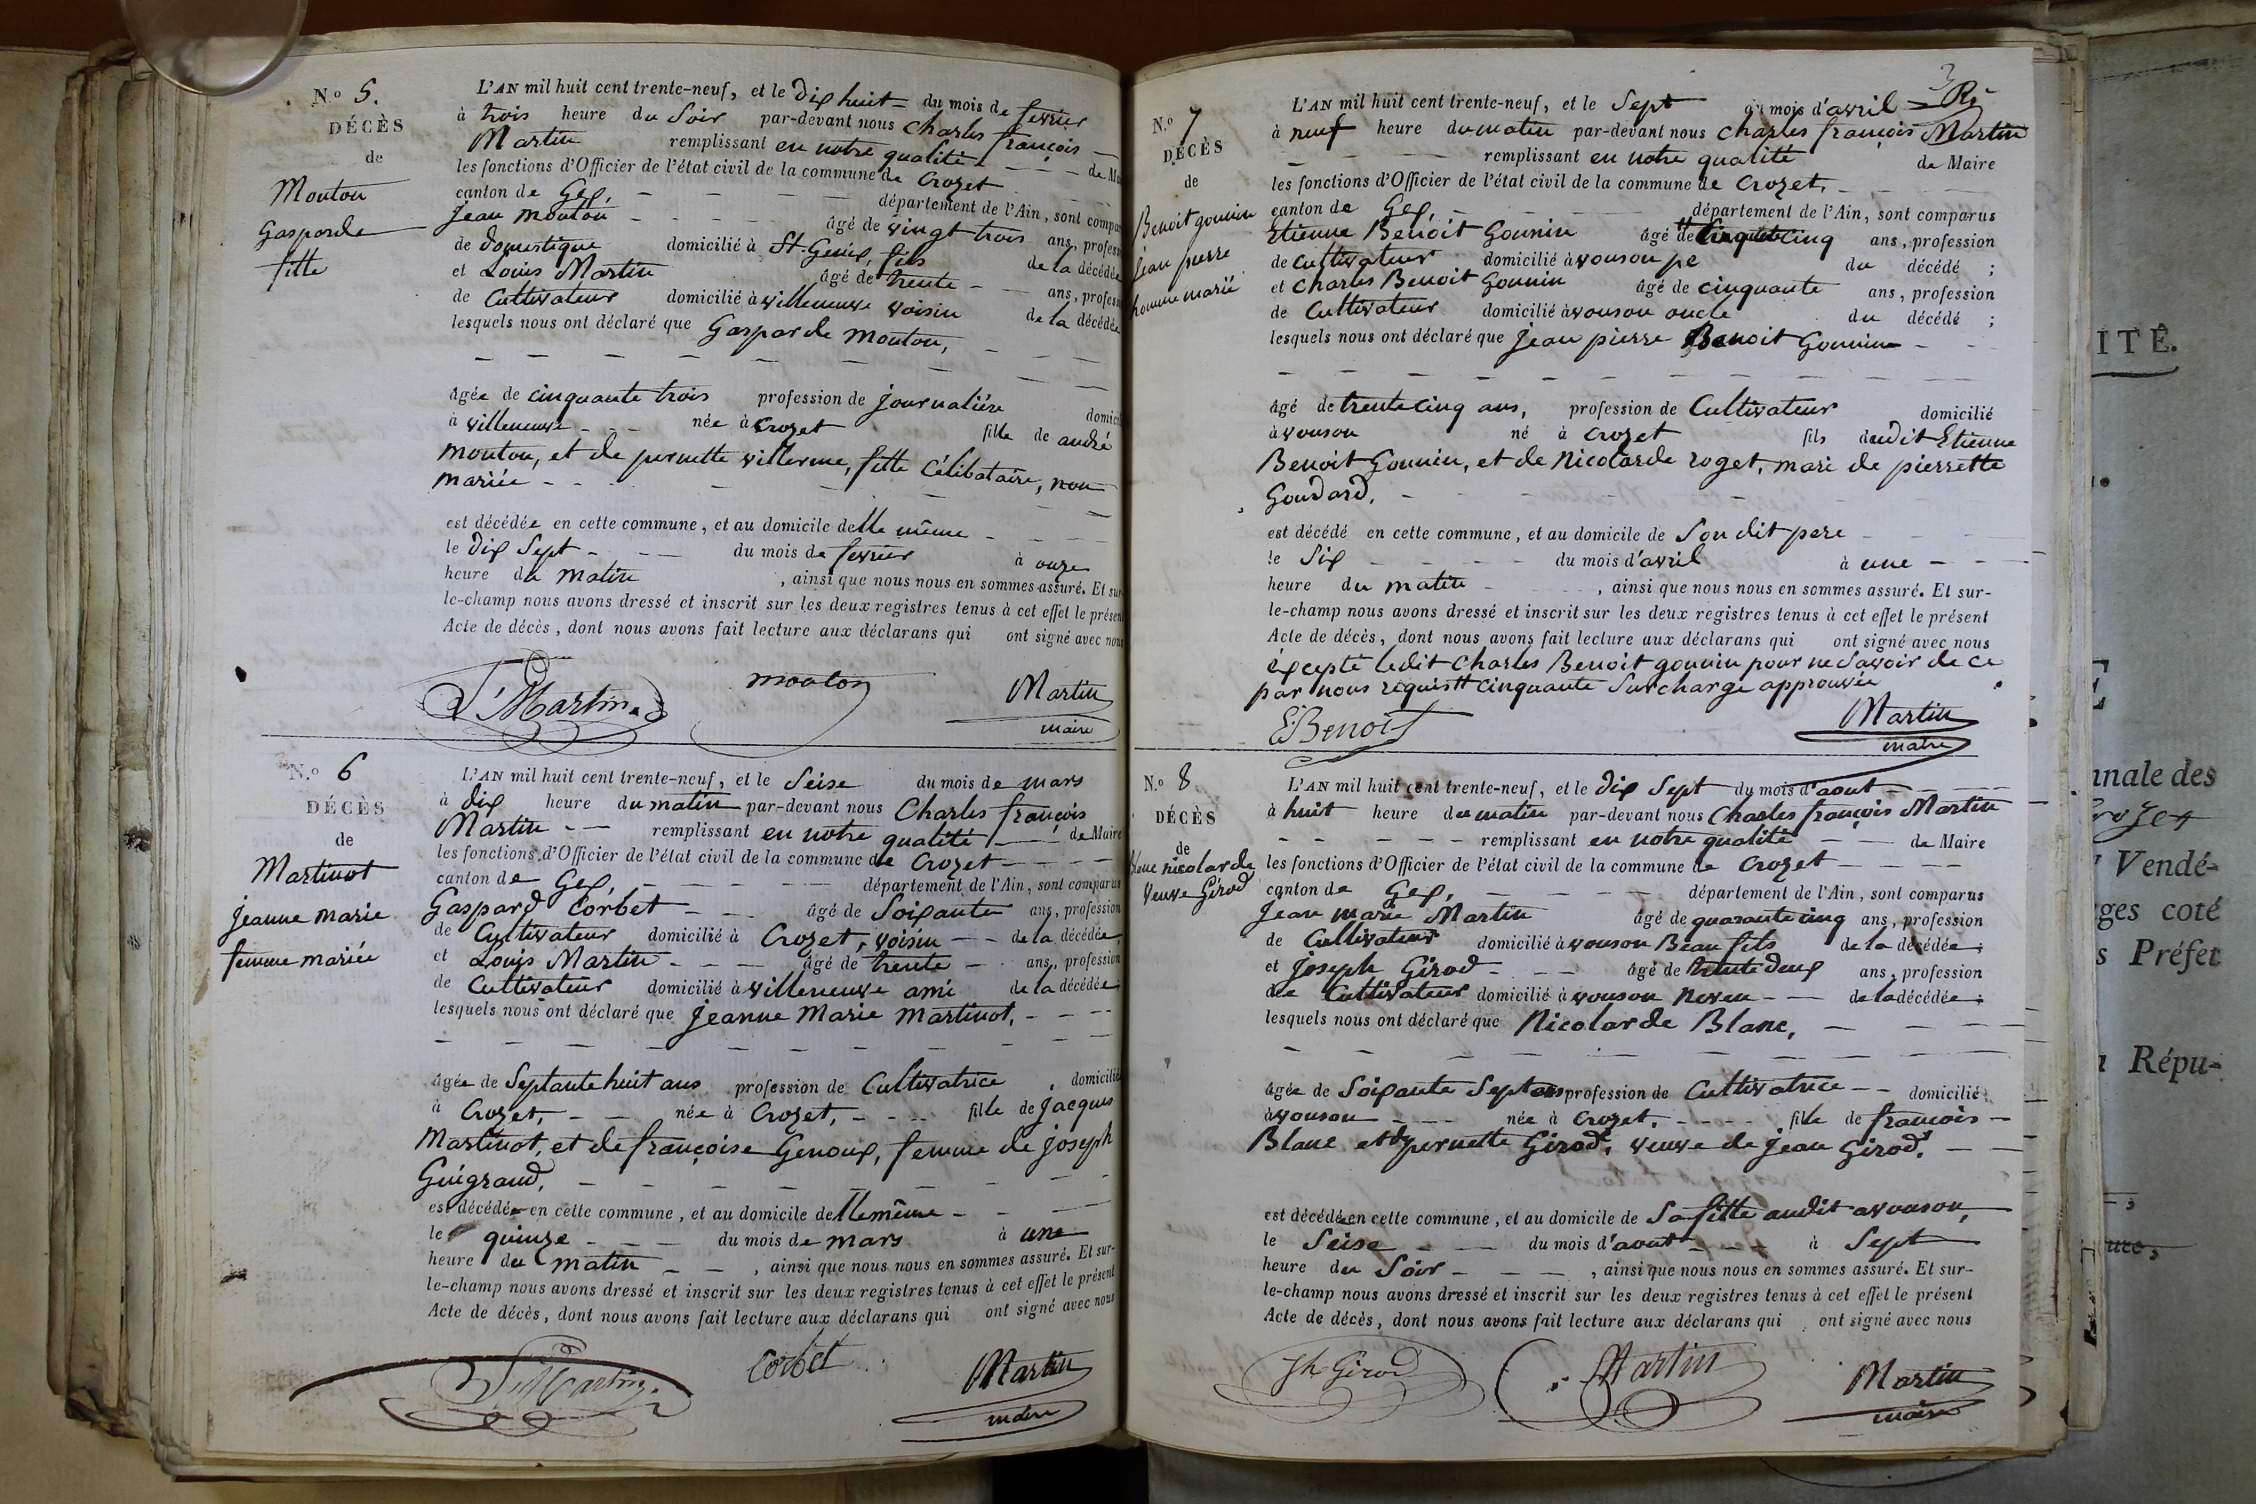 N.o 5.
DÉCÈS
de
Mouton
Gasparde
fille
L'AN mil huit cent trente-neuf, et le dix huit du mois de fevrier
à trois heure du Soir par-devant nous Charles françois
Martin remplissant en notre qualité de Ma
les fonctions d'Officier de l'état civil de la commune de Crozet
canton de Gex, département de l'Ain, sont compar
jean mouton âgé de vingt trois ans, profess
de domestique domicilié à St. Genix, fils de la décédée
et Louis Martin âgé de trente ans, profess
de Cultivateur domicilié à villeneuve voisin de la décédée
lesquels nous ont déclaré que Gasparde mouton,
âgée de cinquante trois profession de journalière domici
à villeneuve née à Crozet fille de andré
mouton, et de pernette villerme, fille Célibataire, non
mariée
est décédée en cette commune, et au domicile delle même
le dix Sept du mois de fevrier à onze
heure du matin, ainsi que nous nous en sommes assuré. Et sur
le-champ nous avons dressé et inscrit sur les deux registres tenus à cet effet le présen
Acte de décès, dont nous avons fait lecture aux déclarans qui ont signé avec nous
Martin mouton Martin
maire
N.o 6
DÉCÈS
de
Martinot
jeanne marie
femme mariée
L'AN mil huit cent trente-neuf, et le Seise du mois de mars
à dix heure du matin par-devant nous Charles françois
Martin remplissant en notre qualité de Maire
les fonctions d'Officier de l'état civil de la commune de Crozet
canton de Gex, département de l'Ain, sont comparus
Gaspard Corbet âgé de Soixante ans, profession
de Cultivateur domicilié à Crozet, voisin de la décédée
et Louis Martin âgé de trente ans, profession
de Cultivateur domicilié à villeneuve ami de la décédée
lesquels nous ont déclaré que jeanne Marie Martinot,
âgée de Septante huit ans profession de Cultivatrice, domicilié
à Crozet, née à Crozet, fille de jacques
Martinot, et de françoise Genoux, femme de joseph
Guigrand,
est décédée en cette commune, et au domicile dellemême
le quinze du mois de mars à une
heure du matin, ainsi que nous nous en sommes assuré. Et sur-
le-champ nous avons dressé et inscrit sur les deux registres tenus à cet effet le présent
Acte de décès, dont nous avons fait lecture aux déclarans qui ont signé avec nous
Martin Corbet Martin
maire
3
N.o 7
DÉCÈS
de
Benoit gounin
jean pierre
homme marié
L'AN mil huit cent trente-neuf, et le Sept du mois d'avril
à neuf heure du matin par-devant nous Charles françois Martin
remplissant en notre qualité de Maire
les fonctions d'Officier de l'état civil de la commune de Crozet,
canton de Gex, département de l'Ain, sont comparus
Etienne Benoit Gounin âgé de cinq ans, profession
de cultivateur domicilié à vouson pe du décédé;
et Charles Benoit Gounin âgé de cinquante ans, profession
de Cultivateur domicilié à vouson oncle du décédé;
lesquels nous ont déclaré que jean pierre Benoit Gounin
âgé de trente cinq ans, profession de Cultivateur domicilié
à vouson né à Crozet fils dudit Etienne
Benoit Gounin, et de Nicolarde roget, mari de pierrette
Goudard,
est décédé en cette commune, et au domicile de Son dit pere
le Six du mois d'avril à une
heure du matin, ainsi que nous nous en sommes assuré. Et sur-
le-champ nous avons dressé et inscrit sur les deux registres tenus à cet effet le présent
Acte de décès, dont nous avons fait lecture aux déclarans qui ont signé avec nous
éxcepté ledit Charles Benoit gounin pour ne Savoir de ce
par nous requis cinquante Surcharge approuvée
E. Benoit Martin
maire
N.o 8
DÉCÈS
de
Blanc nicolarde
Veuve Girod
L'AN mil huit cent trente-neuf, et le dix Sept du mois d'aout
à huit heure du matin par-devant nous Charles françois Martin
remplissant en notre qualité de Maire
les fonctions d'Officier de l'état civil de la commune de Crozet
canton de Gex, département de l'Ain, sont comparus
Jean marie Martin âgé de quarante cinq ans, profession
de Cultivateur domicilié à vouson Beau fils de la décédée;
et joseph Girod âgé de trente deux ans, profession
de Cultivateur domicilié à vouson Neveu de la décédée;
lesquels nous ont déclaré que Nicolarde Blanc,
âgée de Soixante Sept ans profession de Cultivatrice domicilié
à vouson née à Crozet, fille de francois
Blanc et de pernette Girod, veuve de jean Girod,
est décédée en cette commune, et au domicile de Sa fille audit avouson,
le Seise du mois d'aout à Sept
heure du Soir, ainsi que nous nous en sommes assuré. Et sur-
le-champ nous avons dressé et inscrit sur les deux registres tenus à cet effet le présent
Acte de décès, dont nous avons fait lecture aux déclarans qui ont signé avec nous
Jh Girod Martin Martin
maire
ITÉ.
nnale des
Vendé-
ges coté
s Préfet
Répu-